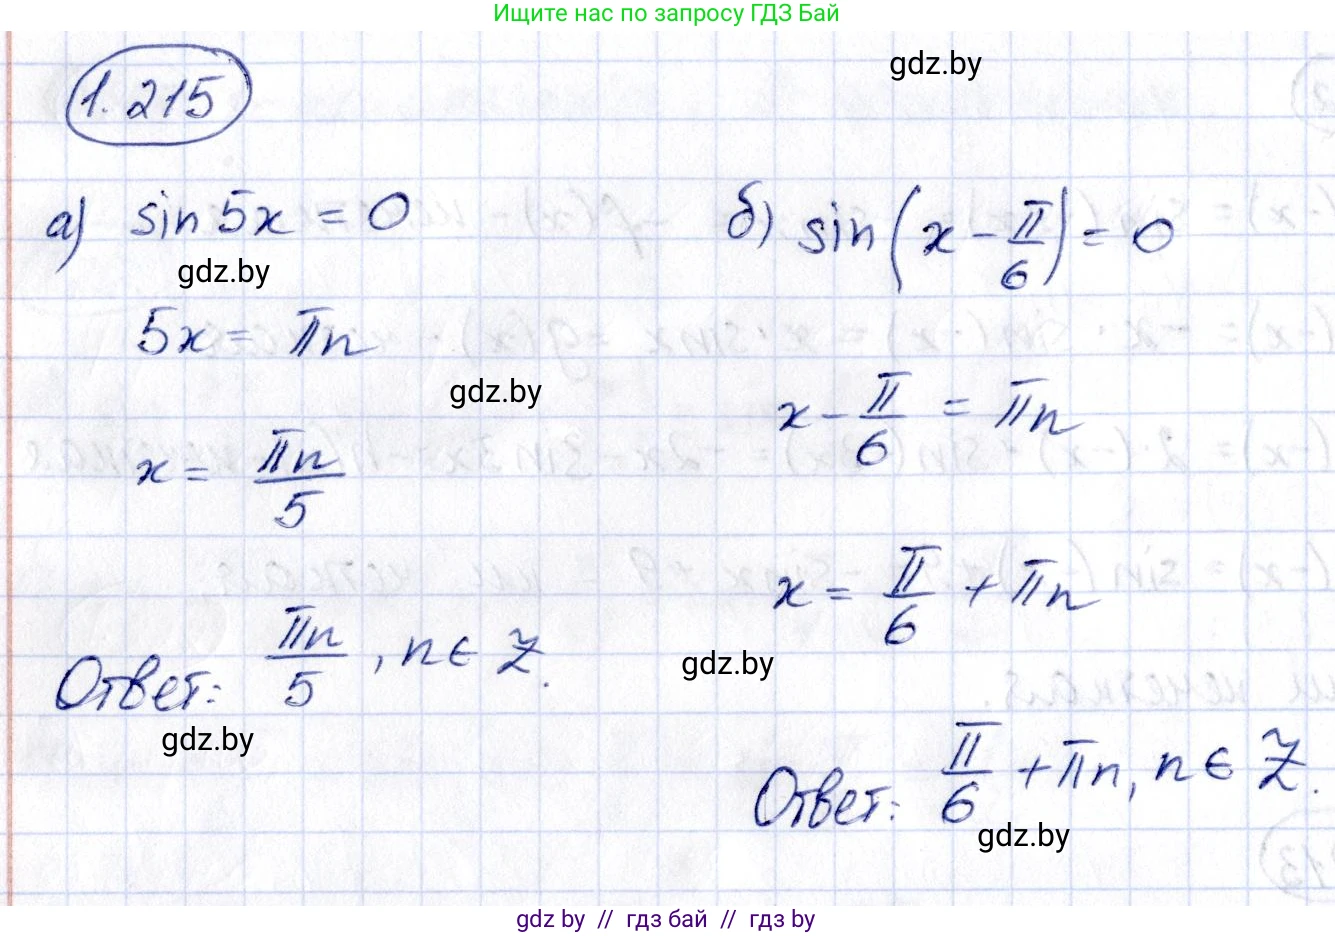 Ищите нас по запросу ГДЗ Бай
1.215
gdz.by
а) sin 5x = 0
gdz.by
5x = πn
gdz.by
x = πn/5
Ответ: πn/5, n ∈ Z.
gdz.by
б) sin(x - π/6) = 0
x - π/6 = πn
x = π/6 + πn
gdz.by
Ответ: π/6 + πn, n ∈ Z.
gdz.by
gdz by // гдз бай // гдз by